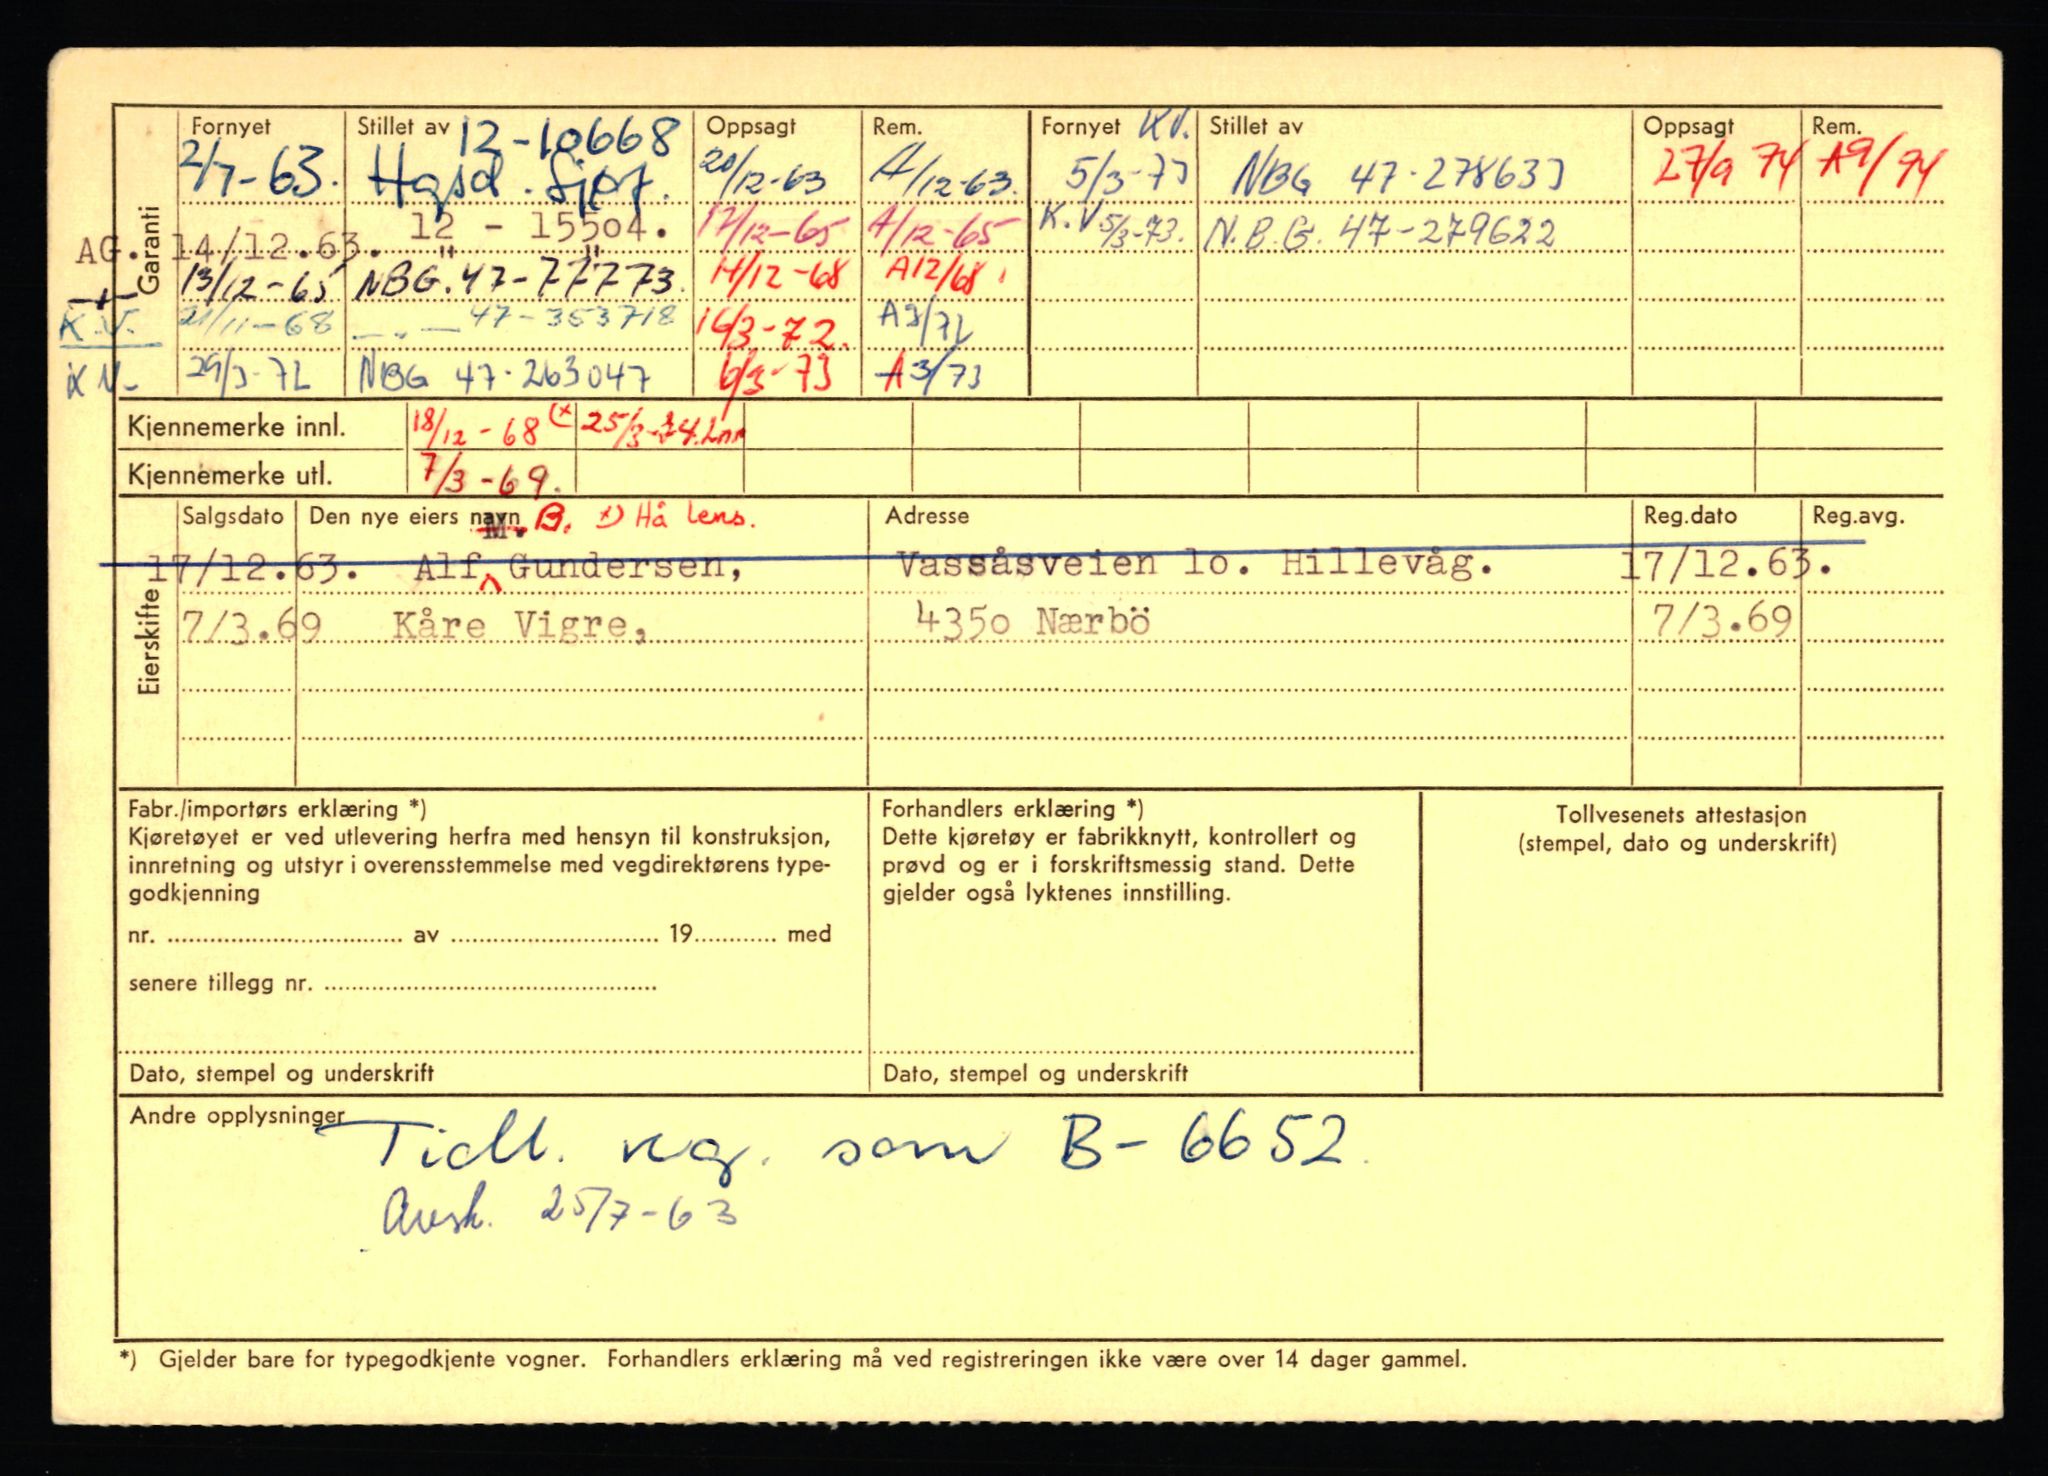 Garanti
Fornyet Stillet av 12-10668 Oppsagt Rem. Fornyet KV. Stillet av Oppsagt Rem.
2/7-63. Hgsd. Sjøf. 20/12-63 A/12-63. 5/3-73 NBG 47-278633 27/9 74 A9/74
AG. 14/12.63. 12 - 15504. 17/12-65 A/12-65 K.V 5/3-73. N.B.G. 47-279622
13/12-65 NBG. 47-77773. 14/12-68 A12/68.
K.V. 21/11-68 — " — 47-353718 16/3-72. A3/72
KV. 29/3-72 NBG 47-263047 6/3-73 A3/73
Kjennemerke innl. 18/12-68 (x 25/3-74.
Kjennemerke utl. 7/3-69.
Eierskifte
Salgsdato Den nye eiers navn M. B. x) Hå lens. Adresse Reg.dato Reg.avg.
17/12.63. Alf Gundersen, Vassåsveien 1o. Hillevåg. 17/12.63.
7/3.69 Kåre Vigre, 435o Nærbö 7/3.69
Fabr./importørs erklæring *)
Kjøretøyet er ved utlevering herfra med hensyn til konstruksjon,
innretning og utstyr i overensstemmelse med vegdirektørens type-
godkjenning
nr. .......... av .......... 19.......... med
senere tillegg nr. ..........
Dato, stempel og underskrift
Forhandlers erklæring *)
Dette kjøretøy er fabrikknytt, kontrollert og
prøvd og er i forskriftsmessig stand. Dette
gjelder også lyktenes innstilling.
Dato, stempel og underskrift
Tollvesenets attestasjon
(stempel, dato og underskrift)
Andre opplysninger
Tidl. reg. som B-6652.
Avsk. 25/7-63
*) Gjelder bare for typegodkjente vogner. Forhandlers erklæring må ved registreringen ikke være over 14 dager gammel.